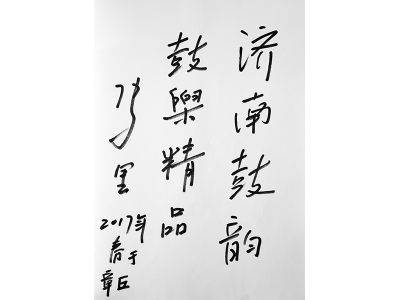 济南鼓韵
鼓樂精品
2017年
春于
章丘